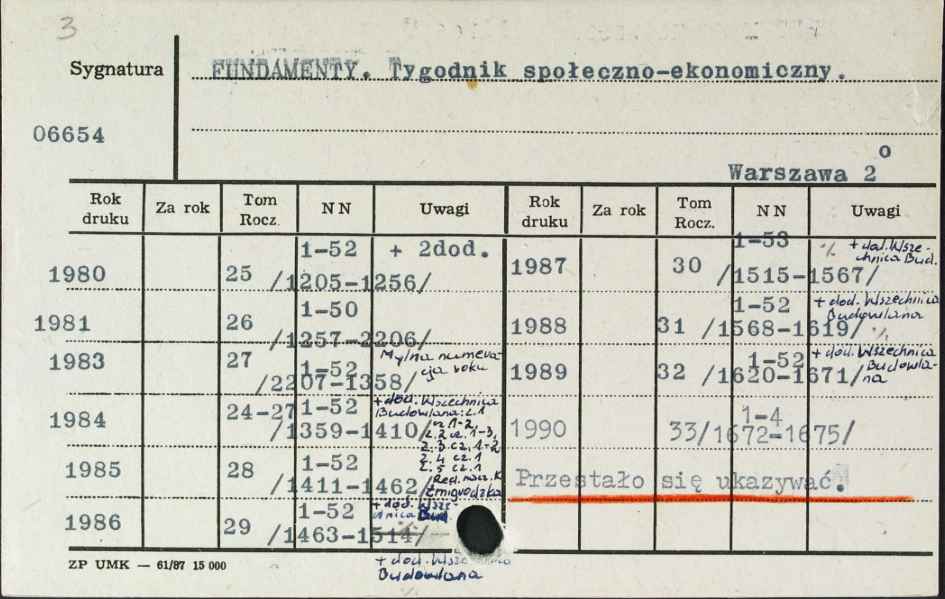 3
Sygnatura
FUNDAMENTY. Tygodnik społeczno-ekonomiczny.
06654
Warszawa 2o
Rok druku Za rok Tom Rocz. NN Uwagi
1980 25 1-52 /1205-1256/ + 2dod.
1981 26 1-50 /1257-2206/
1983 27 1-52 /2207-1358/ Mylna numeracja roku
1984 24-27 1-52 /1359-1410/ + dod. Wszechnica
Budowlana: z.1
cz.1-2,
z.2 cz.1-3,
z.3 cz.1-2
z.4 cz.1
z.5 cz.1
1985 28 1-52 /1411-1462/ Red. nacz. K
Żmigrodzka
1986 29 1-52 /1463-1514/ + dod. Wsze-
chnica Bud
+ dod. Wszechnica
Budowlana
Rok druku Za rok Tom Rocz. NN Uwagi
1987 30 1-53 /1515-1567/ + dod. Wsze-
chnica Bud.
1988 31 1-52 /1568-1619/ + dod. Wszechnica
Budowlana
1989 32 1-52 /1620-1671/ + dod. Wszechnica
Budowla-
na
1990 33 1-4 /1672-1675/
Przestało się ukazywać.
ZP UMK — 61/87 15 000